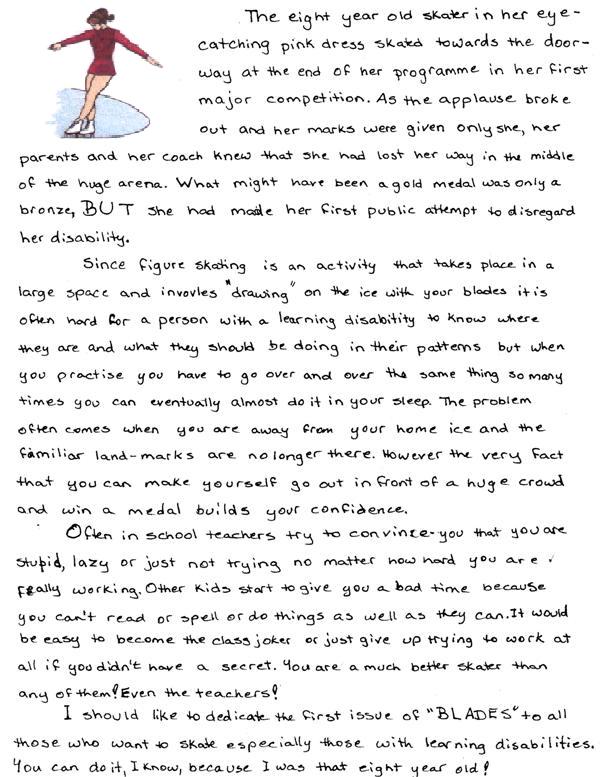 The eight year old skater in her eye-
catching pink dress skated towards the door-
way at the end of her programme in her first
major competition. As the applause broke
out and her marks were given only she, her
parents and her coach knew that she had lost her way in the middle
of the huge arena. What might have been a gold medal was only a
bronze, BUT she had made her first public attempt to disregard
her disability.
Since figure skating is an activity that takes place in a
large space and invovles "drawing" on the ice with your blades it is
often hard for a person with a learning disability to know where
they are and what they should be doing in their patterns but when
you practise you have to go over and over the same thing so many
times you can eventually almost do it in your sleep. The problem
often comes when you are away from your home ice and the
familiar land-marks are no longer there. However the very fact
that you can make yourself go out in front of a huge crowd
and win a medal builds your confidence.
Often in school teachers try to convince you that you are
stupid, lazy or just not trying no matter how hard you are
really working. Other kids start to give you a bad time because
you can't read or spell or do things as well as they can. It would
be easy to become the class joker or just give up trying to work at
all if you didn't have a secret. You are a much better skater than
any of them! Even the teachers!
I should like to dedicate the first issue of "BLADES" to all
those who want to skate especially those with learning disabilities.
You can do it, I know, because I was that eight year old!